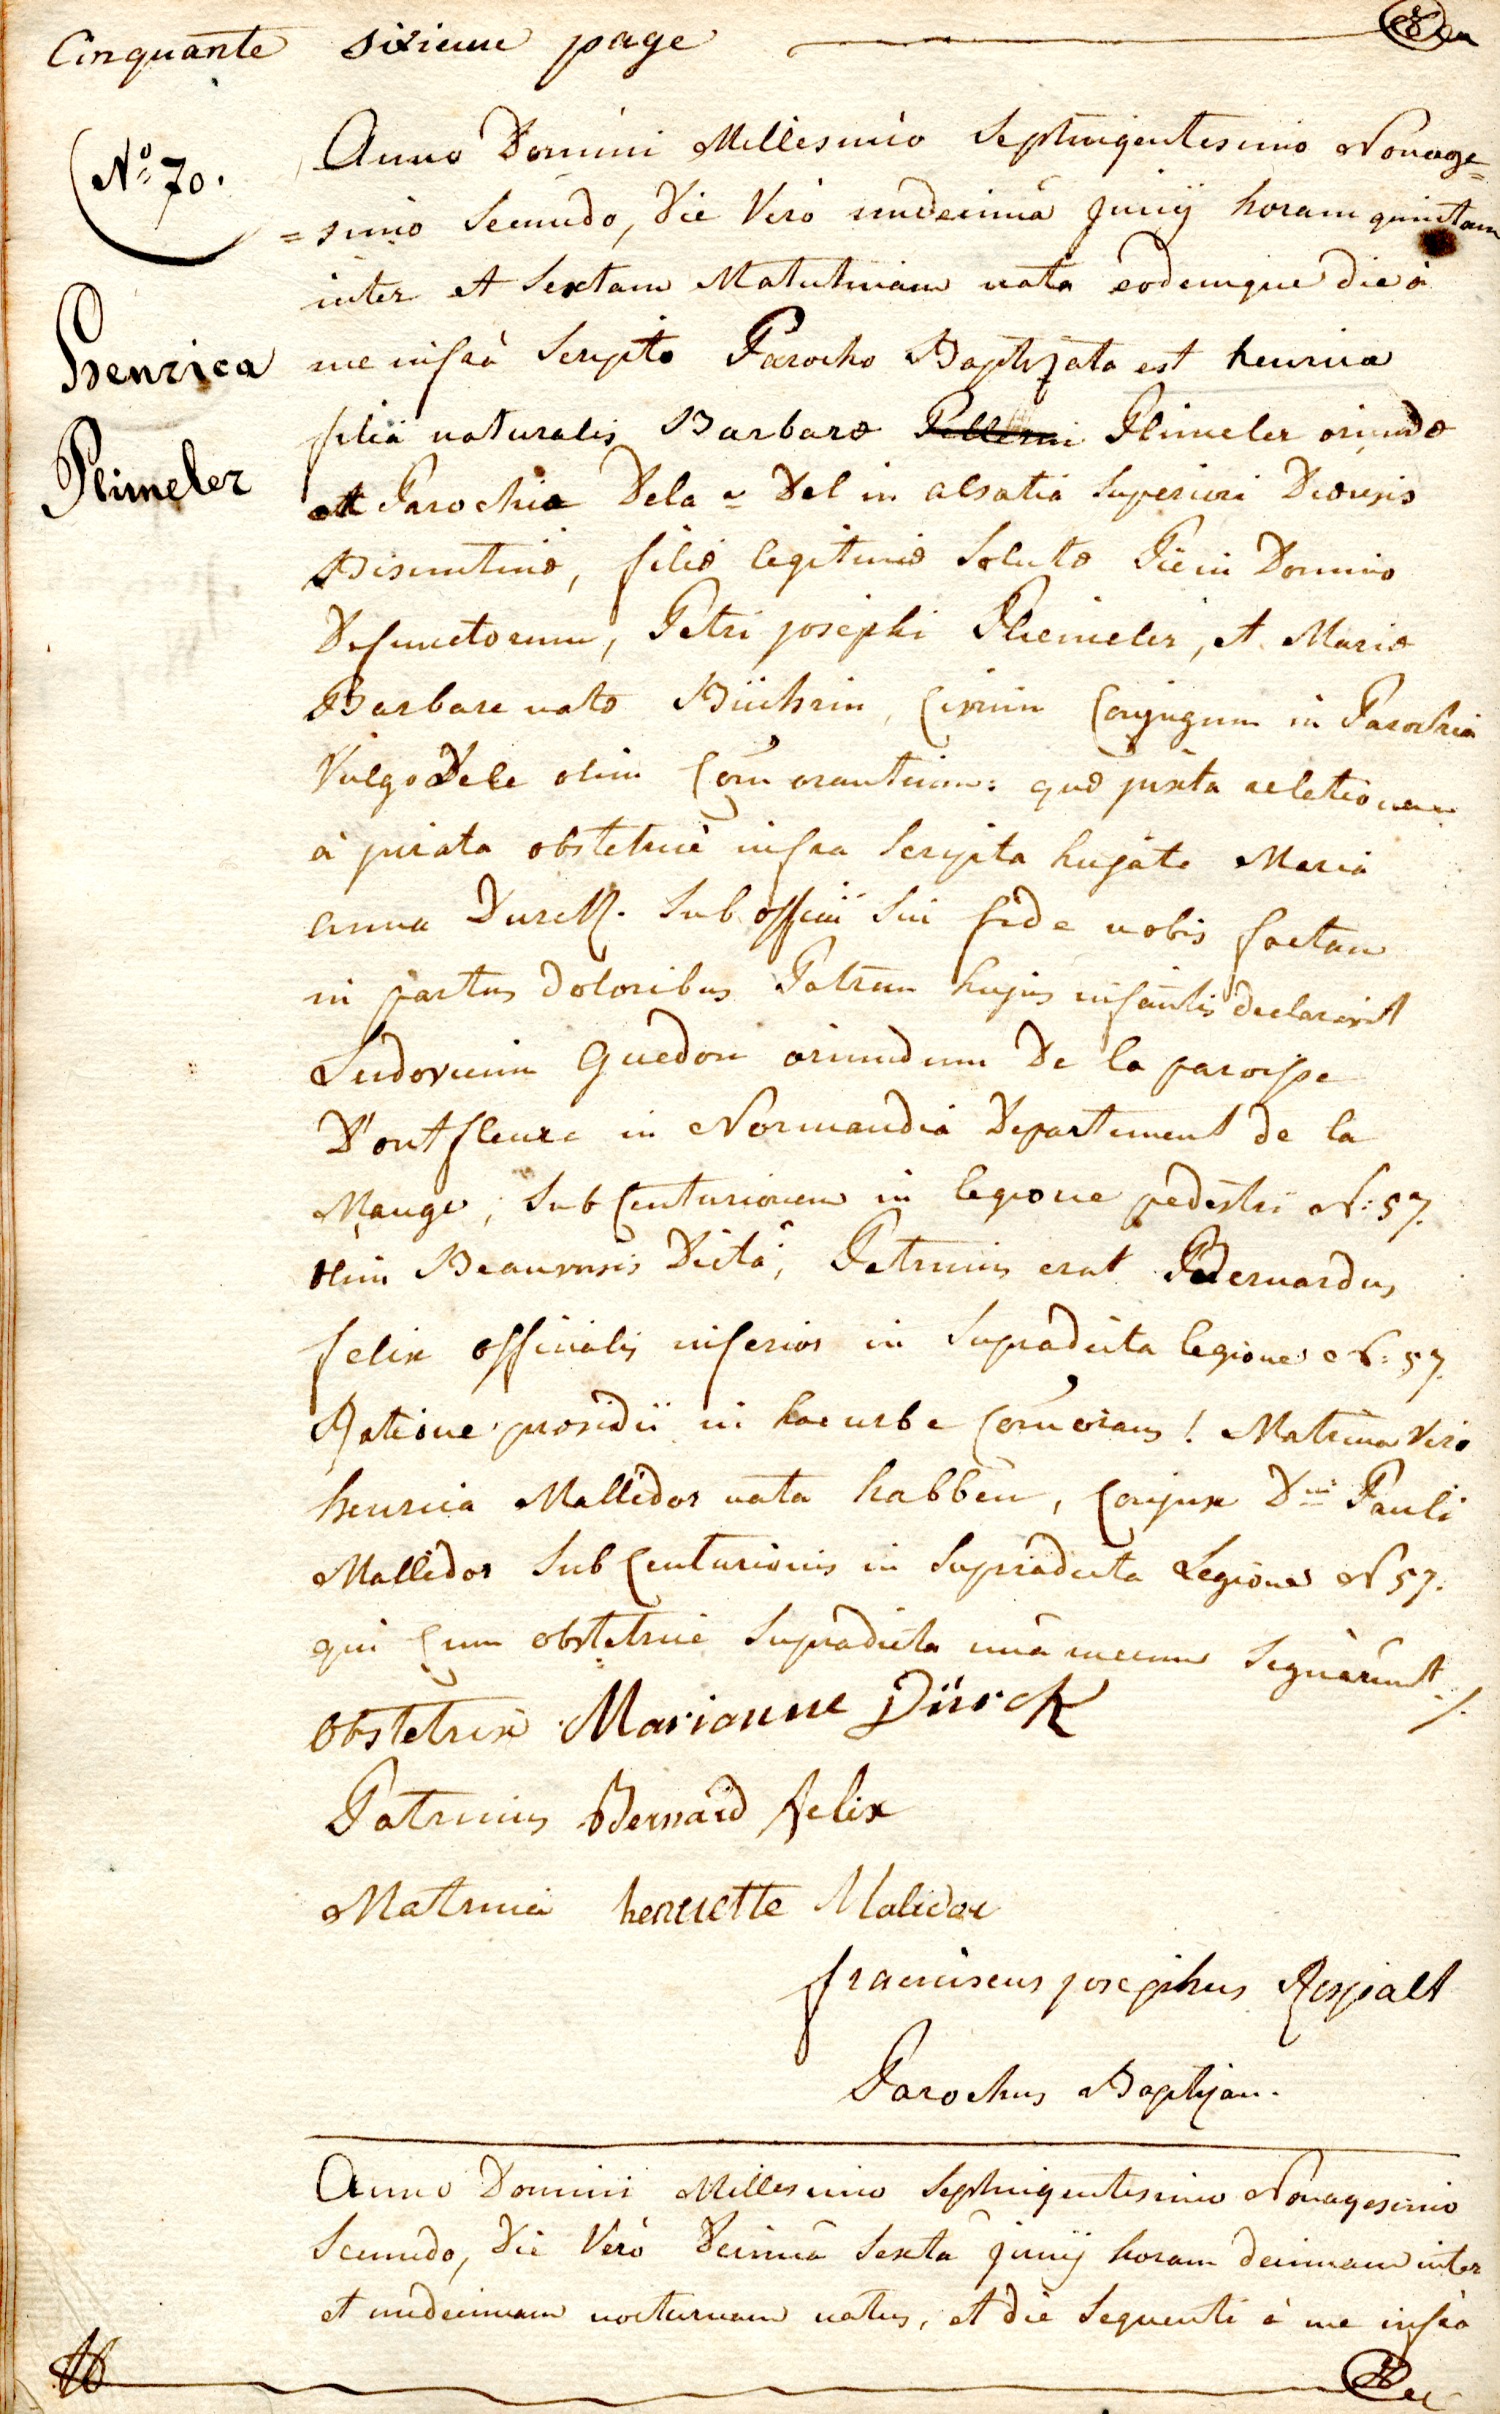 Cinquante sixieme page
No 70.
Anno Domini Millesimo Septingentesimo Nonage=
=simo Secundo, Die Verò undecimâ Junij horam quintam
inter et Sextam Matutinam nata eodemque die à
Henrica
me infrà Scripto Parocho Baptizata est henrica
filia naturalis Barbaræ Plimeler oriundæ
Plimeler
Parochia Dela = Del in alsatia Superiori Diœcesis
Bisuntinæ, filiæ legitimæ Solutæ Piè in Domino
Defunctorum, Petri josephi Pliemeler, et Mariæ
Barbare natæ Büchrin, Civium Conjugum in Parochia
Vulgo Dele olim Com̃orantium: quæ juxta relationem
à jurata obstetrice infra Scripta hujate Maria
anna Durck. Sub officii Sui fide nobis factam
in partus doloribus Patrem hujus infantis declaravit
Ludovicum Guedon oriundum De la paroisse
D'ontfleure in Normandia Departement de la
Mange, Sub Centurionem in legione pedestri N: 57.
olim Beauvoisis Dictâ; Patrinus erat Bernardus
felix officialis inferior in Supradicta legione N: 57.
Ratione præsidii in hac urbe Com̃orans! Matrina Verò
henrica Mallidor nata habben, Conjux Dni Pauli
Mallidor Sub Centurionis in Supradicta Legione N 57.
qui Cum obstetrice Supradicta unà mecum Signârunt ./.
Obstetrix Marianne Dürck
Patrinus Bernard felix
Matrina henriette Malidor
franciscus josephus Rospalt
Parochus Baptizan.
Anno Domini Millesimo Septingentesimo Nonagesimo
Secundo, Die Verò Decimâ Sexta junij horam decimam inter
et undecimam nocturnam natus, et die Sequenti à me infrà